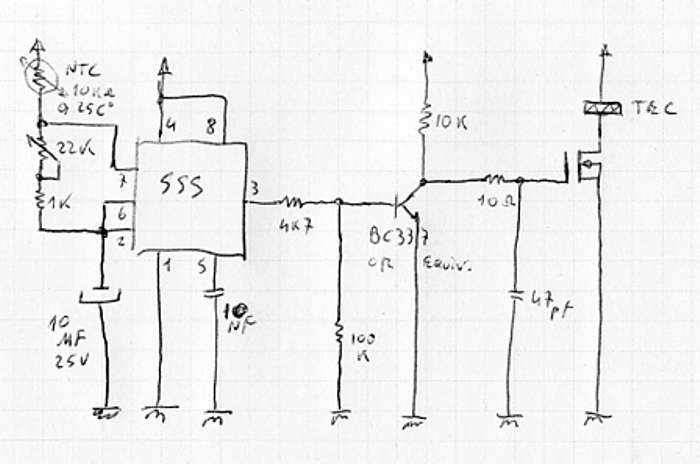 NTC
10KΩ
@ 25C°
22K
1K
4
8
7
6
2
555
3
1
5
10
MF
25V
10
NF
4K7
100
K
10K
BC337
OR Equiv.
10Ω
47pf
TEC